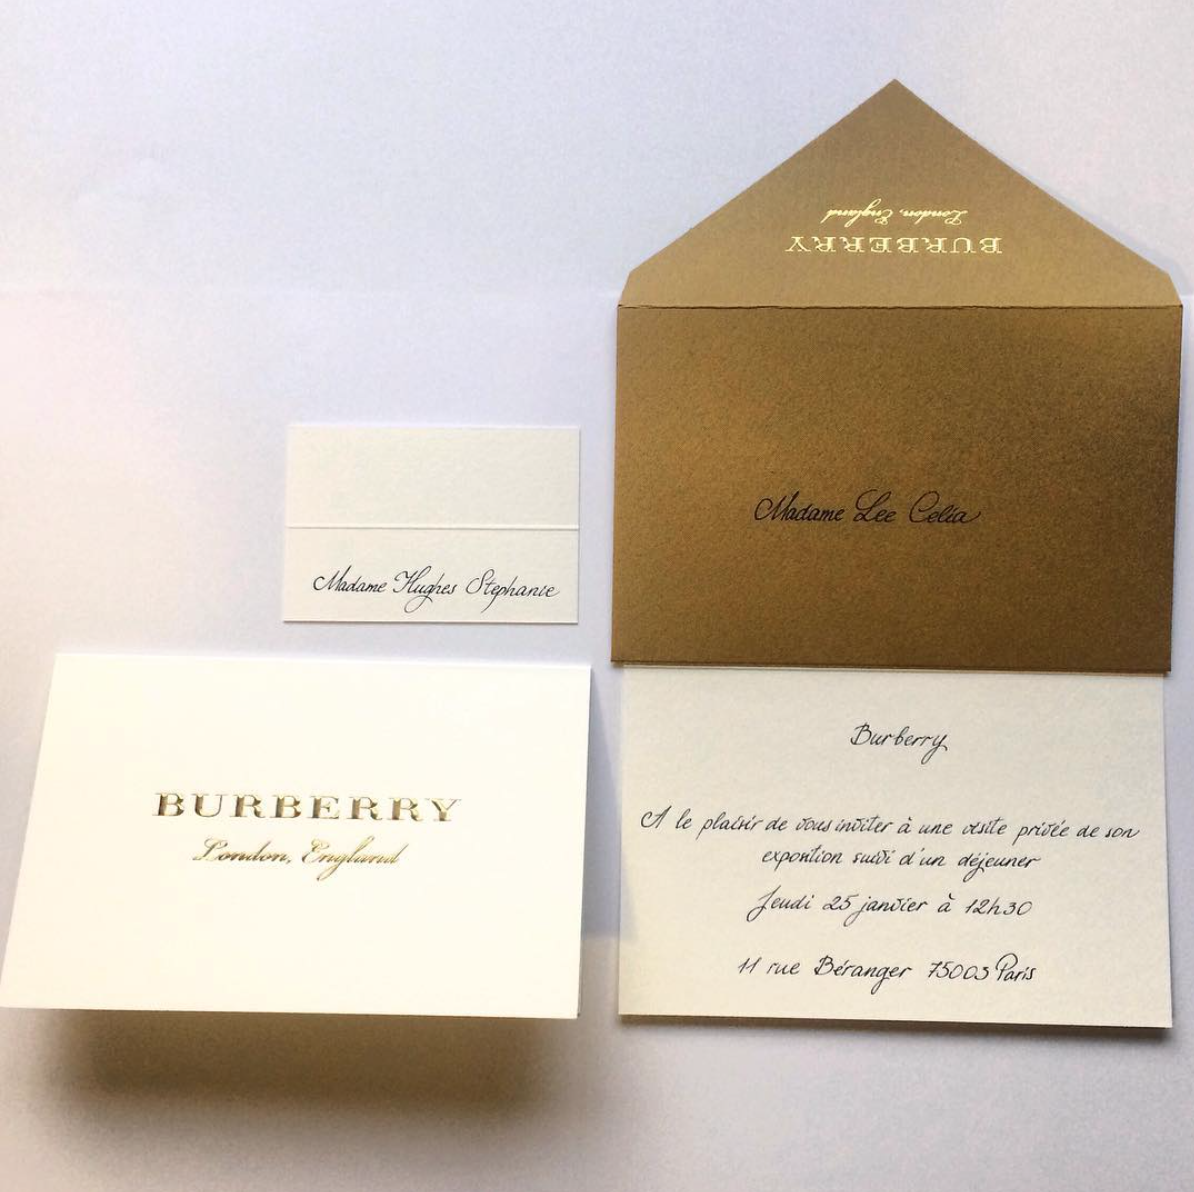 London, England
BURBERRY
Madame Lee Celia
Madame Hughes Stephanie
BURBERRY
London, England
Burberry
A le plaisir de vous inviter à une visite privée de son
expostion suivi d'un déjeuner
Jeudi 25 janvier à 12h30
11 rue Béranger 75003 Paris